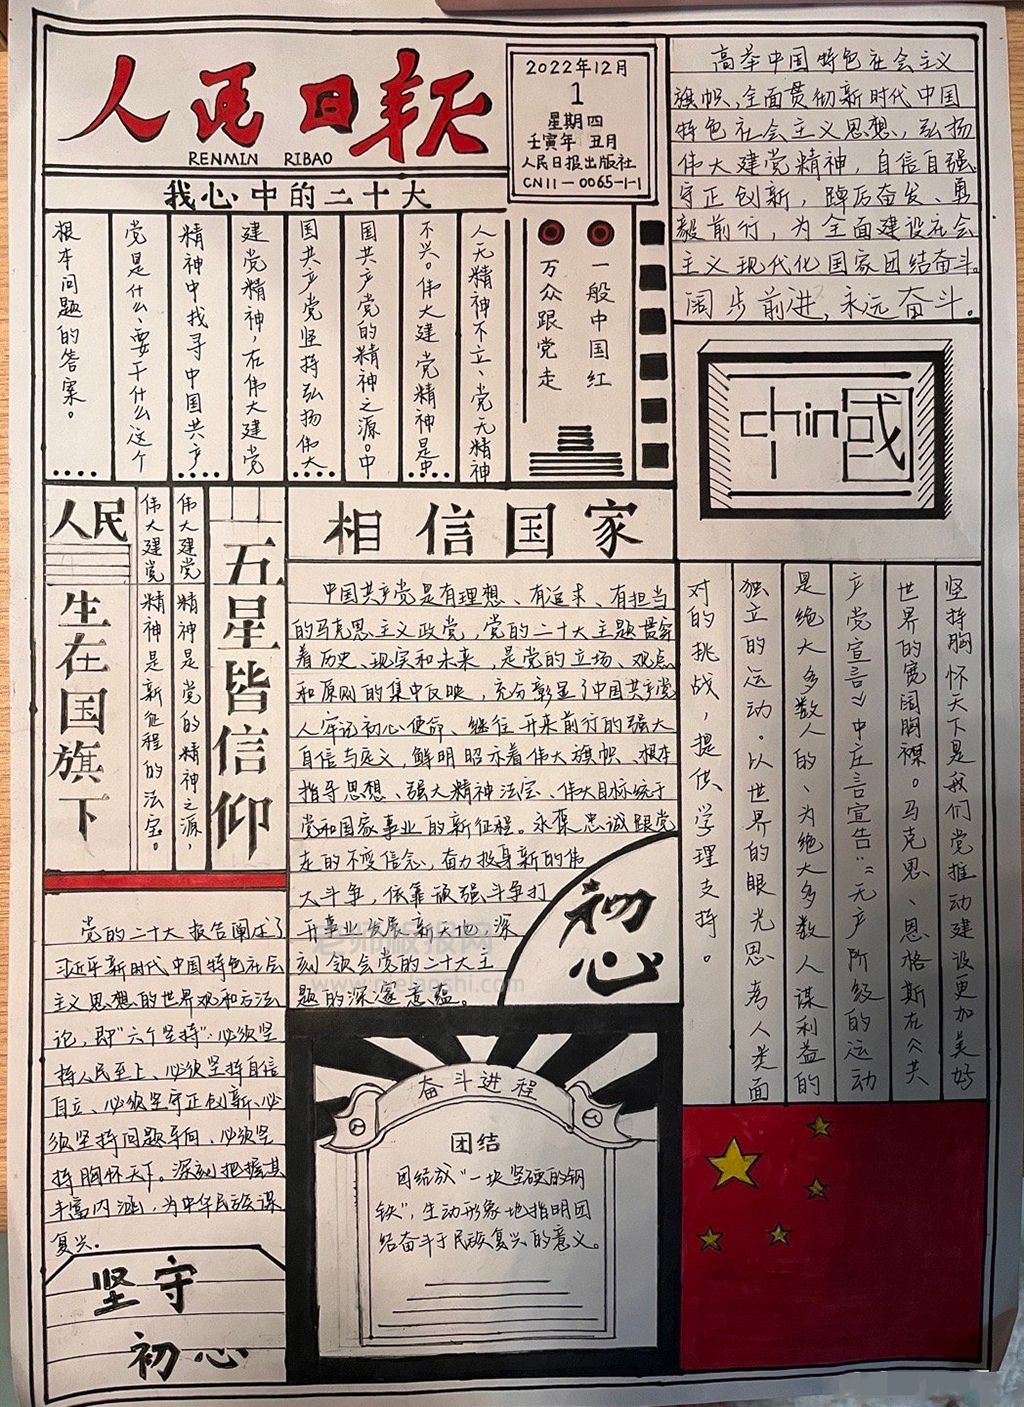 人民日报
RENMIN RIBAO
2022年12月
1
星期四
壬寅年 丑月
人民日报出版社
CN11-0065-1-1
高举中国特色社会主义
旗帜,全面贯彻新时代中国
特色社会主义思想,弘扬
伟大建党精神,自信自强
守正创新,踔厉奋发、勇
毅前行,为全面建设社会
主义现代化国家团结奋斗。
阔步前进,永远奋斗。
我心中的二十大
一般中国红
万众跟党走
人无精神不立、党无精神
不兴。伟大建党精神是中
国共产党的精神之源。中
国共产党坚持弘扬伟大
建党精神,在伟大建党
精神中找寻中国共产
党是什么、要干什么这个
根本问题的答案。
china国
人民
生在国旗下
伟大建党精神是新征程的法宝。
伟大建党精神是党的精神之源,
五星皆信仰
相信国家
中国共产党是有理想、有追求、有担当
的马克思主义政党,党的二十大主题贯穿
着历史、现实和未来,是党的立场、观点
和原则的集中反映,充分彰显了中国共产党
人牢记初心使命、继往开来前行的强大
自信与定义,鲜明昭示着伟大旗帜、根本
指导思想、强大精神法宝、伟大目标统于
党和国家事业的新征程。永葆忠诚跟党
走的不变信念,奋力投身新的伟
大斗争,依靠顽强斗争打
开事业发展新天地,深
刻领会党的二十大主
题的深邃意蕴。
初心
坚持胸怀天下是我们党推动建设更加美好
世界的宽阔胸襟。马克思、恩格斯在《共
产党宣言》中庄言宣告:“无产阶级的运动
是绝大多数人的、为绝大多数人谋利益的
独立的运动。以世界的眼光思考人类面
对的挑战,提供学理支持。
党的二十大报告阐述了
习近平新时代中国特色社会
主义思想的世界观和方法
论,即“六个坚持”:必须坚
持人民至上、必须坚持自信
自立、必须坚守正创新、必
须坚持问题导向、必须坚
持胸怀天下。深刻把握其
丰富内涵,为中华民族谋
复兴。
坚守
初心
奋斗进程
团结
团结成“一块坚硬的钢
铁”,生动形象地指明团
结奋斗于民族复兴的意义。
老师板报网